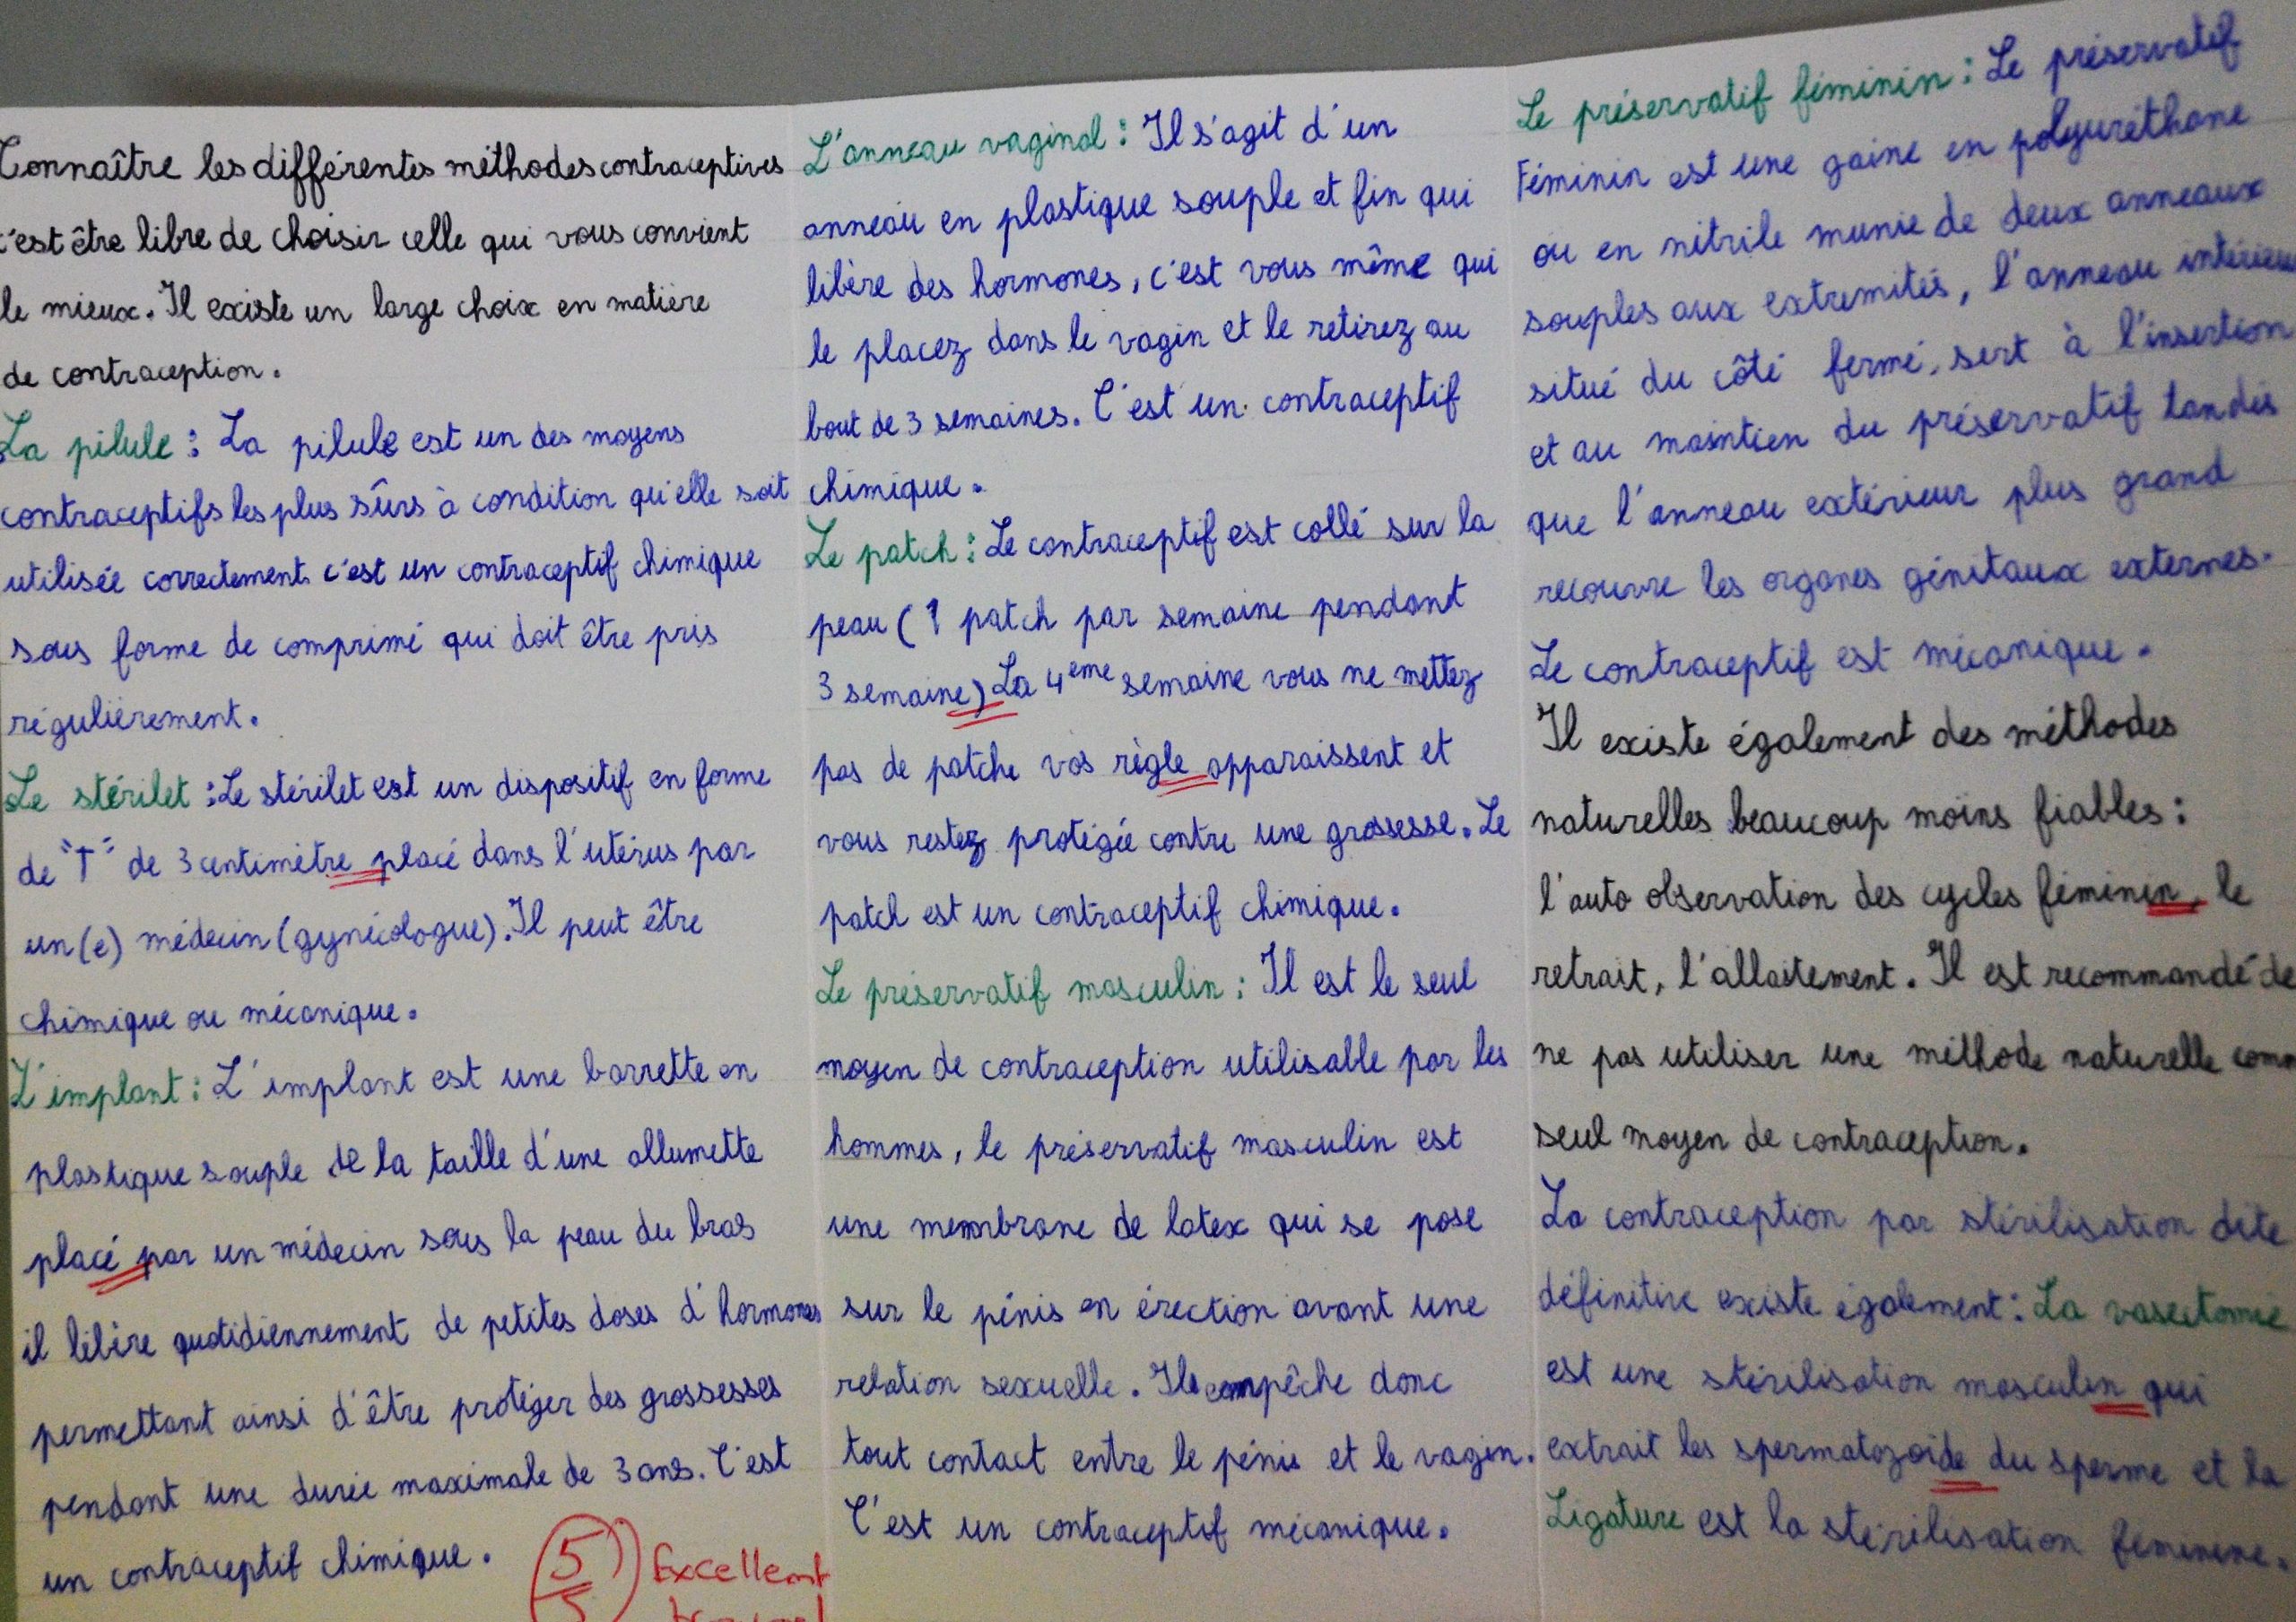 Connaître les différentes méthodes contraceptives
c'est être libre de choisir celle qui vous convient
le mieux. Il existe un large choix en matière
de contraception.
La pilule : La pilule est un des moyens
contraceptifs les plus sûrs à condition qu'elle soit
utilisée correctement c'est un contraceptif chimique
sous forme de comprimé qui doit être pris
régulièrement.
Le stérilet : Le stérilet est un dispositif en forme
de "T" de 3 centimètre placé dans l'utérus par
un(e) médecin (gynécologue). Il peut être
chimique ou mécanique.
L'implant : L'implant est une barrette en
plastique souple de la taille d'une allumette
placé par un médecin sous la peau du bras
il libère quotidiennement de petites doses d'hormones
permettant ainsi d'être protéger des grossesses
pendant une durée maximale de 3 ans. C'est
un contraceptif chimique.
5/5 Excellent
travail
L'anneau vaginal : Il s'agit d'un
anneau en plastique souple et fin qui
libère des hormones, c'est vous même qui
le placez dans le vagin et le retirez au
bout de 3 semaines. C'est un contraceptif
chimique.
Le patch : Le contraceptif est collé sur la
peau (1 patch par semaine pendant
3 semaine) La 4eme semaine vous ne mettez
pas de patche vos règle apparaissent et
vous restez protégée contre une grossesse. Le
patch est un contraceptif chimique.
Le préservatif masculin : Il est le seul
moyen de contraception utilisable par les
hommes, le préservatif masculin est
une membrane de latex qui se pose
sur le pénis en érection avant une
relation sexuelle. Il empêche donc
tout contact entre le pénis et le vagin.
C'est un contraceptif mécanique.
Le préservatif féminin : Le préservatif
Féminin est une gaine en polyuréthane
ou en nitrile munie de deux anneaux
souples aux extremités, l'anneau intérieur
situé du côté fermé, sert à l'insertion
et au maintien du préservatif tandis
que l'anneau extérieur plus grand
recouvre les organes génitaux externes.
Le contraceptif est mécanique.
Il existe également des méthodes
naturelles beaucoup moins fiables :
l'auto observation des cycles féminin, le
retrait, l'allaitement. Il est recommandé de
ne pas utiliser une méthode naturelle comm
seul moyen de contraception.
La contraception par stérilisation dite
définitive existe également : La vasectomie
est une stérilisation masculin qui
extrait les spermatozoide du sperme et la
Ligature est la stérilisation féminine.